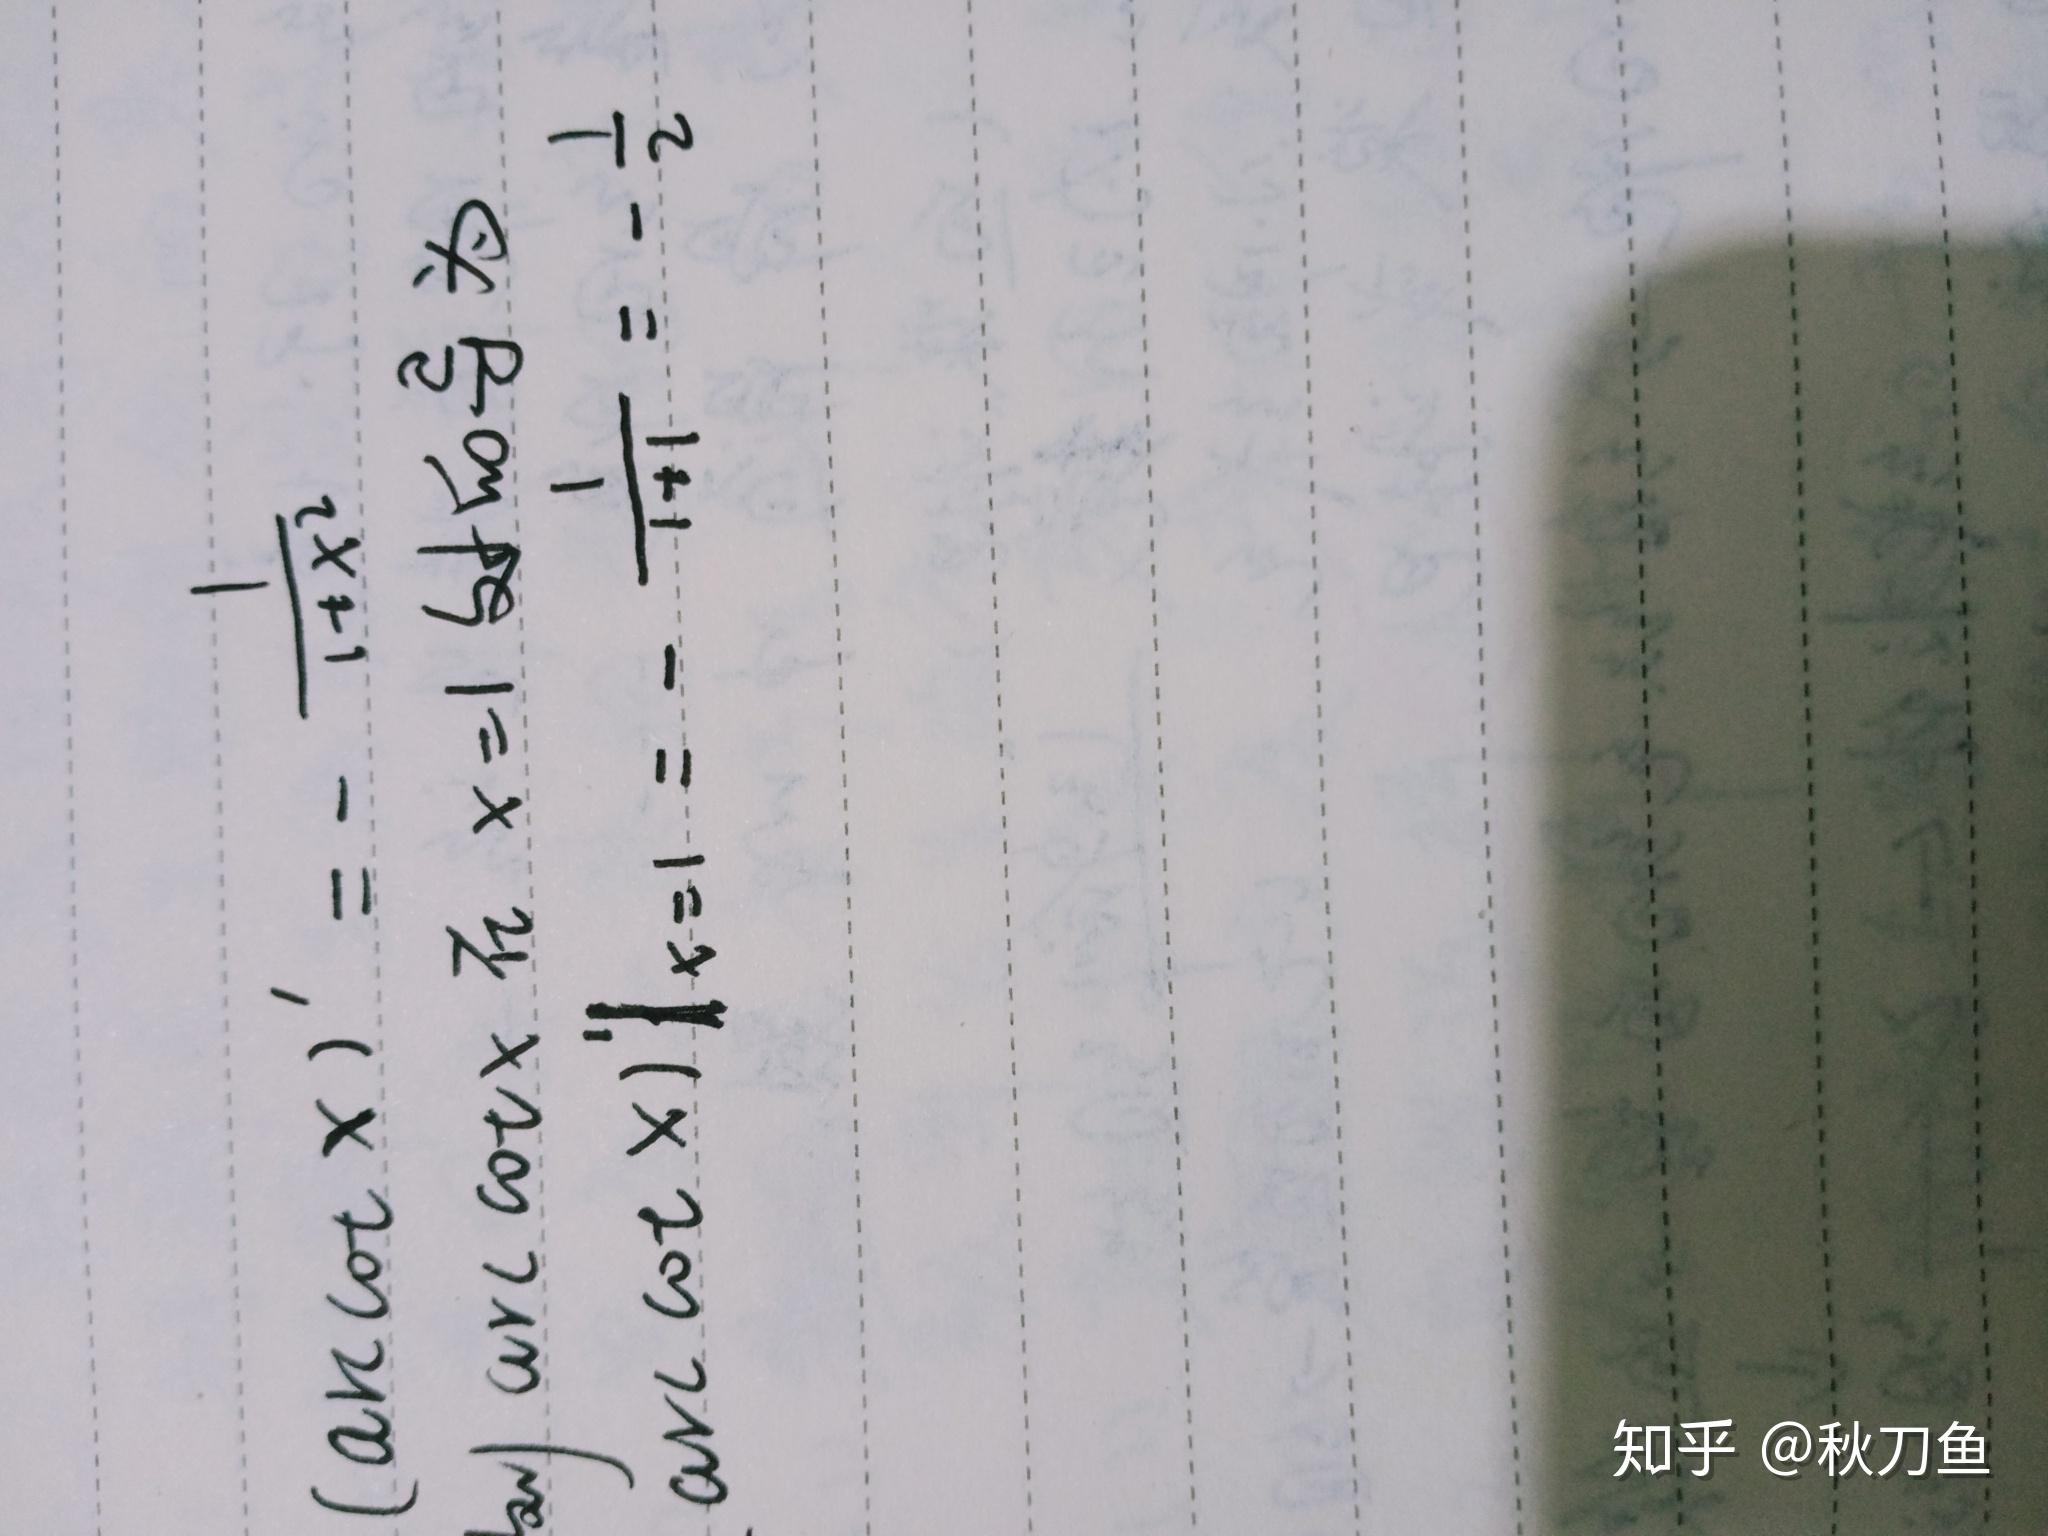 (arc cot x)' = - 1/(1+x²)
arc cot x 在 x=1 的 为
arc cot x)'|x=1 = - 1/(1+1) = - 1/2
知乎 @秋刀鱼